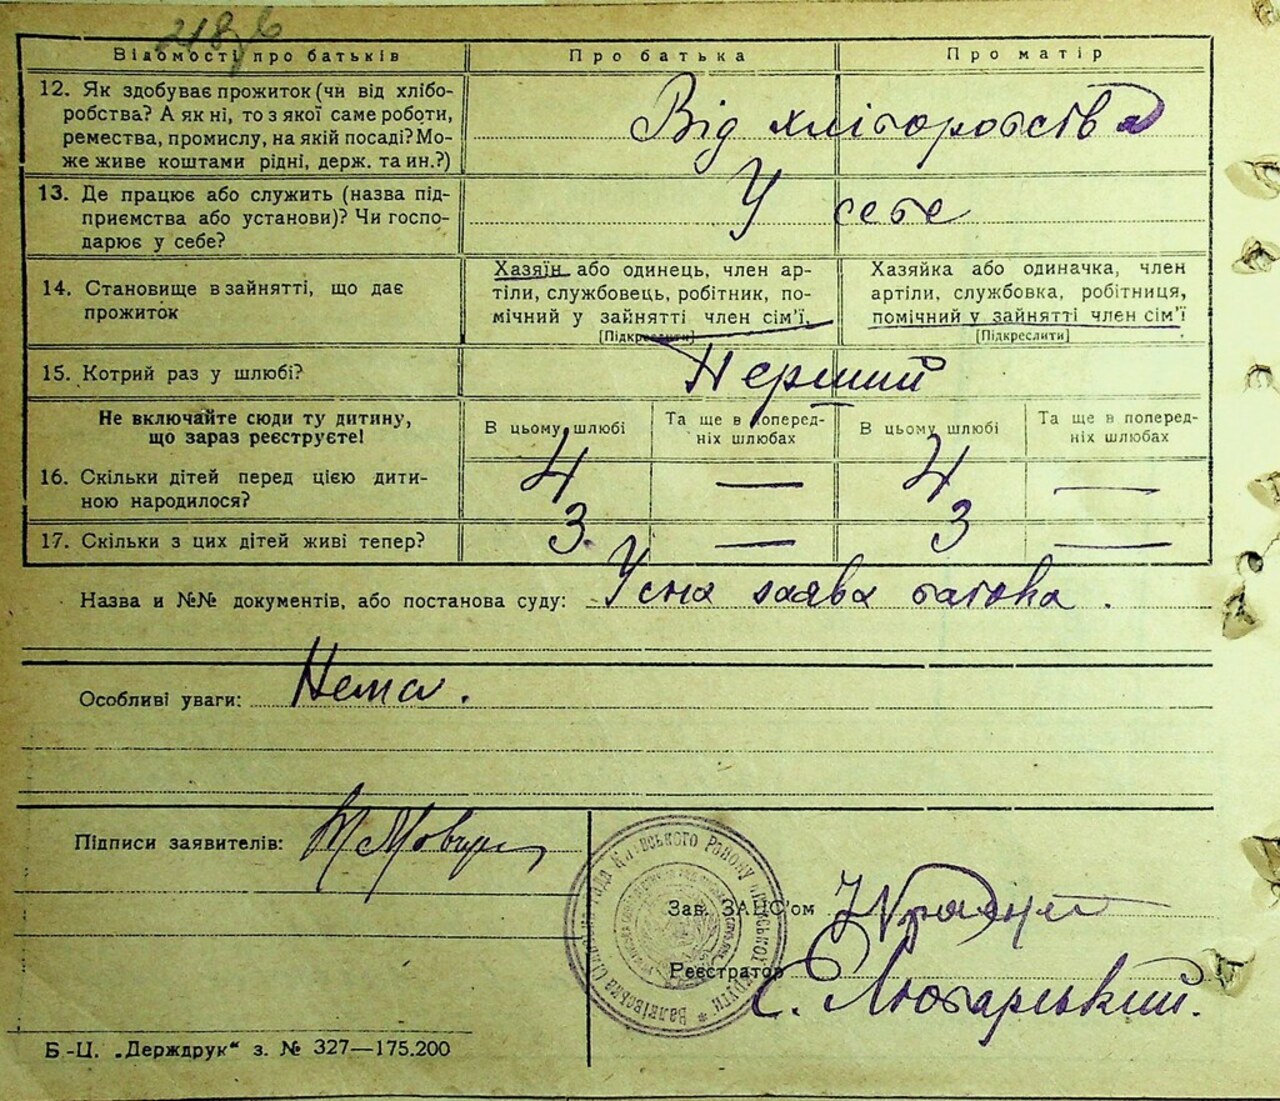 Відомості про батьків
Про батька
Про матір
12. Як здобуває прожиток (чи від хлібо-
робства? А як ні, то з якої саме роботи,
ремества, промислу, на якій посаді? Мо-
же живе коштами рідні, держ. та ин.?)
Від хліборобства
13. Де працює або служить (назва під-
приємства або установи)? Чи госпо-
дарює у себе?
У себе
14. Становище в зайнятті, що дає
прожиток
Хазяїн або одинець, член ар-
тіли, службовець, робітник, по-
мічний у зайнятті член сім'ї.
[Підкреслити]
Хазяйка або одиначка, член
артіли, службовка, робітниця,
помічний у зайнятті член сім'ї
[Підкреслити]
15. Котрий раз у шлюбі?
Перший
Не включайте сюди ту дитину,
що зараз реєструєте!
В цьому шлюбі
Та ще в поперед-
ніх шлюбах
В цьому шлюбі
Та ще в поперед-
ніх шлюбах
16. Скільки дітей перед цією дити-
ною народилося?
4 — 4 —
17. Скільки з цих дітей живі тепер?
3. — 3 —
Назва и №№ документів, або постанова суду: Усна заява батька.
Особливі уваги: Нема.
Підписи заявителів:
Зав. ЗАГС'ом
Реєстратор С. Лютарський.
Району
Валківська
Округи
Б-Ц. „Держдрук“ з. № 327—175.200